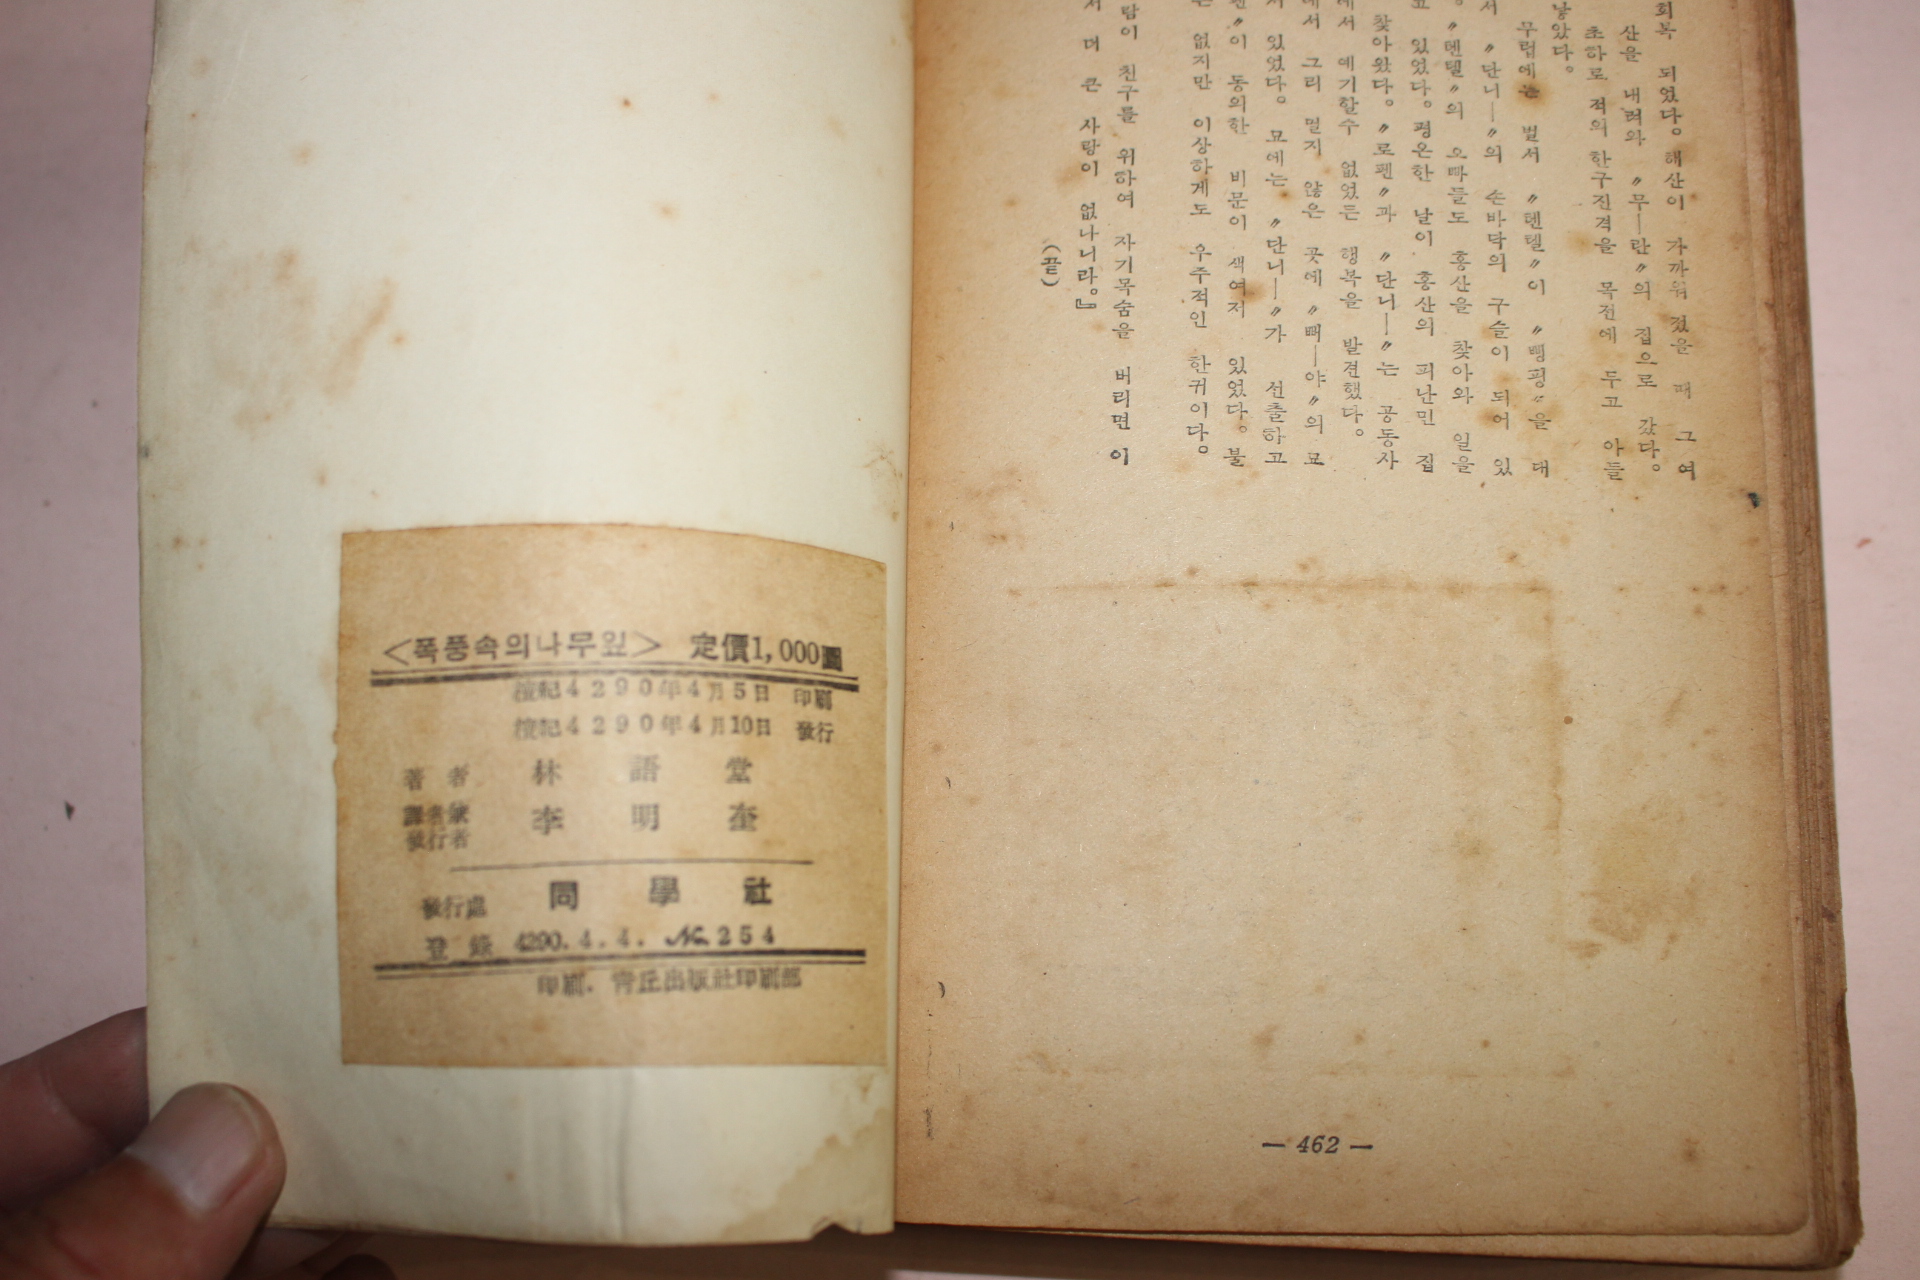 회복 되였다. 해산이 가까워 졌을 때 그 여
산을 내려와 〃무—란〃의 집으로 갔다.
초하로 적의 한구진격을 목전에 두고 아들
낳았다.
무렵에는 벌서 〃텐텔〃이 〃뺑핑〃을 대
서 〃단니—〃의 손바닥의 구슬이 되어 있
〃텐텔〃의 오빠들도 홍산을 찾아와 일을
고 있었다. 평온한 날이 홍산의 피난민 집
찾아왔다. 〃로펜〃과 〃단니—〃는 공동사
에서 예기할수 없었든 행복을 발견했다.
에서 그리 멀지 않은 곳에 〃뻐—야〃의 묘
서 있었다. 묘에는 〃단니—〃가 선출하고
펜〃이 동의한 비문이 색여저 있었다. 불
는 없지만 이상하게도 우주적인 한귀이다.
람이 친구를 위하여 자기목숨을 버리면 이
서 더 큰 사랑이 없나니라.』
(끝)
— 462 —
<폭풍속의나무잎> 定價1,000圜
檀紀4290年4月5日 印刷
檀紀4290年4月10日 發行
著者 林語堂
譯者兼
發行者 李明奎
發行處 同學社
登錄 4290.4.4. №254
印刷. 靑丘出版社印刷部